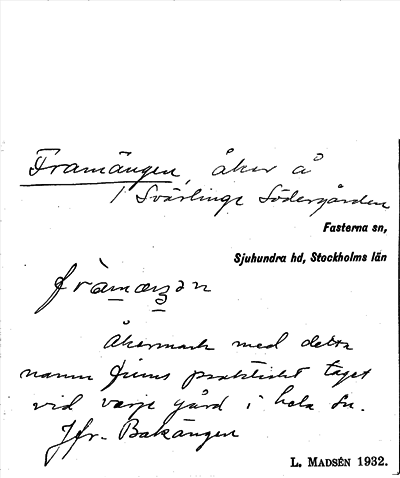 Framängen, åker å
1 Svärlinge Södergården
Fasterna sn,
Sjuhundra hd, Stockholms län
fràmæŋən
Åkermark med detta
namn finns praktiskt taget
vid varje gård i hela sn.
Jfr. Bakängen
L. MADSÉN 1932.